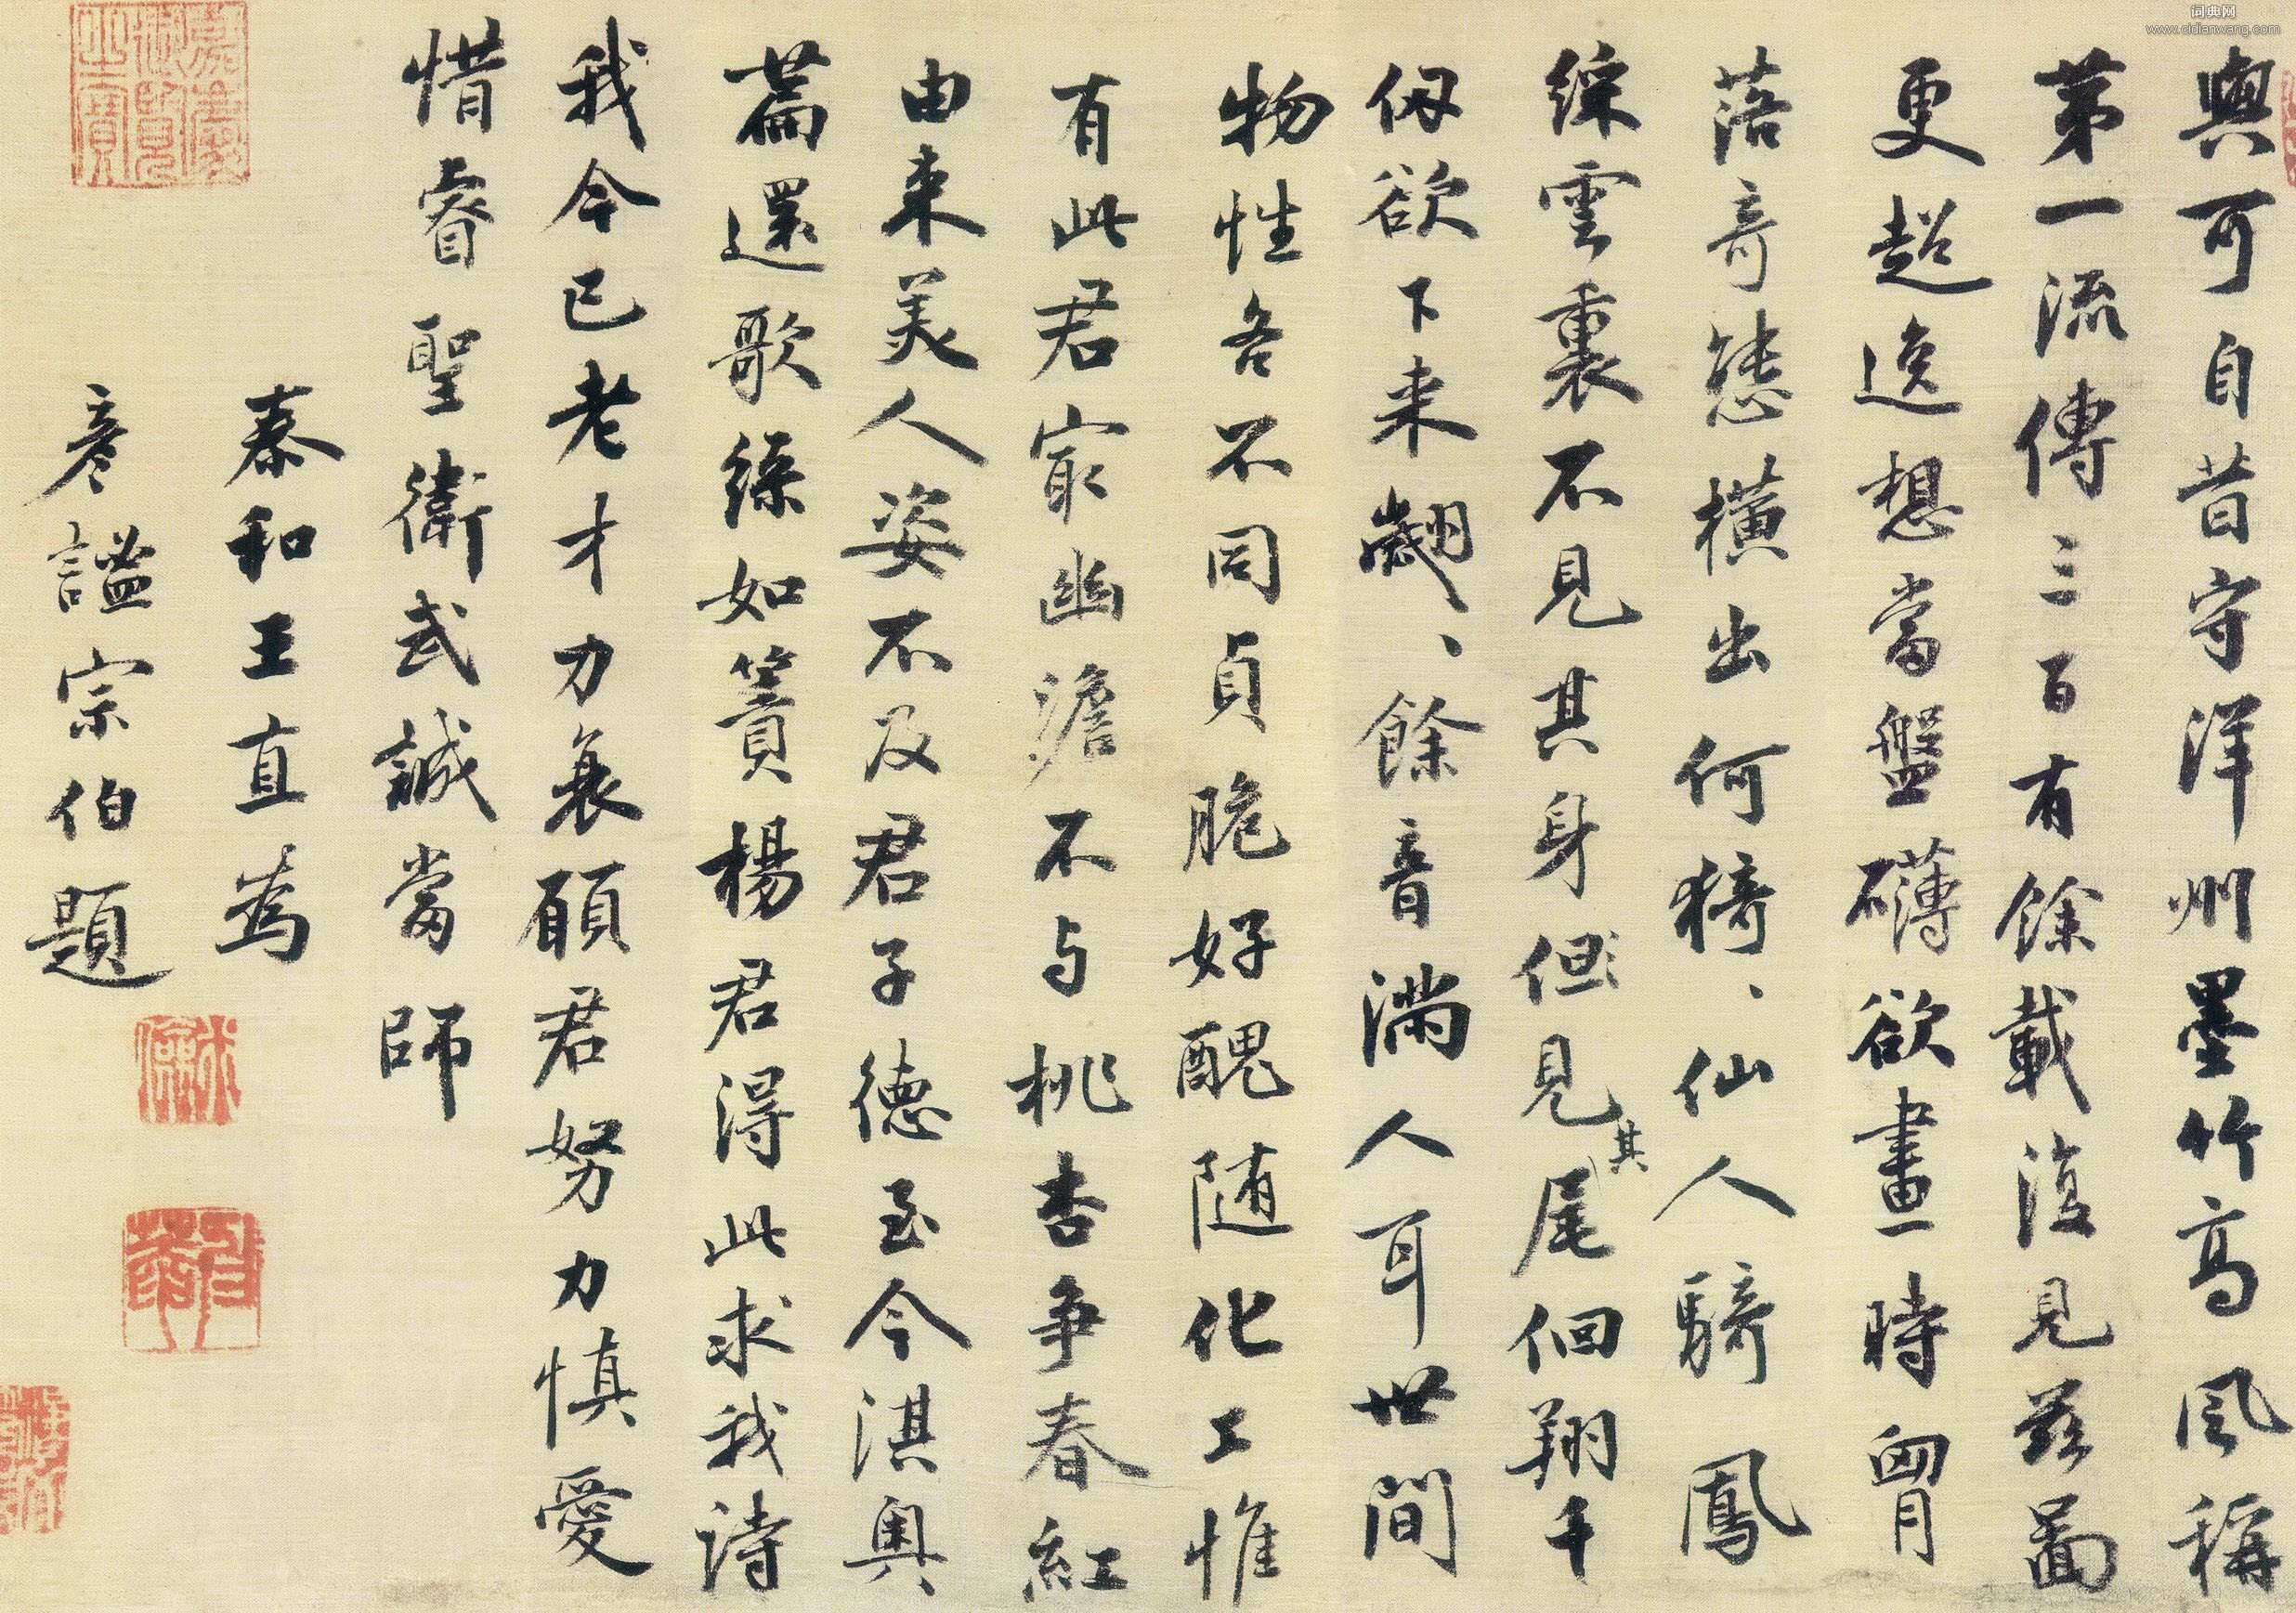 词典网
www.cidianwang.com
與可自昔守洋州墨竹高風稱
苐一流傳三百有餘載復見茲啚
更超逸想當盤礴欲畫時胷
落奇態橫出何猗、仙人騎鳳
綵雲裏不見其身但見其尾佪翔千
仞欲下来翽、餘音滿人耳世間
物性各不同貞脆好醜随化工惟
有此君寂幽澹不与桃杏争春紅
由来美人姿不及君子德至今淇奥
萹還歌緑如簀楊君得此求我詩
我今已老才力衰願君努力慎愛
惜睿聖衛武誠當師
泰和王直為
彦謐宗伯題
嘉慶御覽之寶